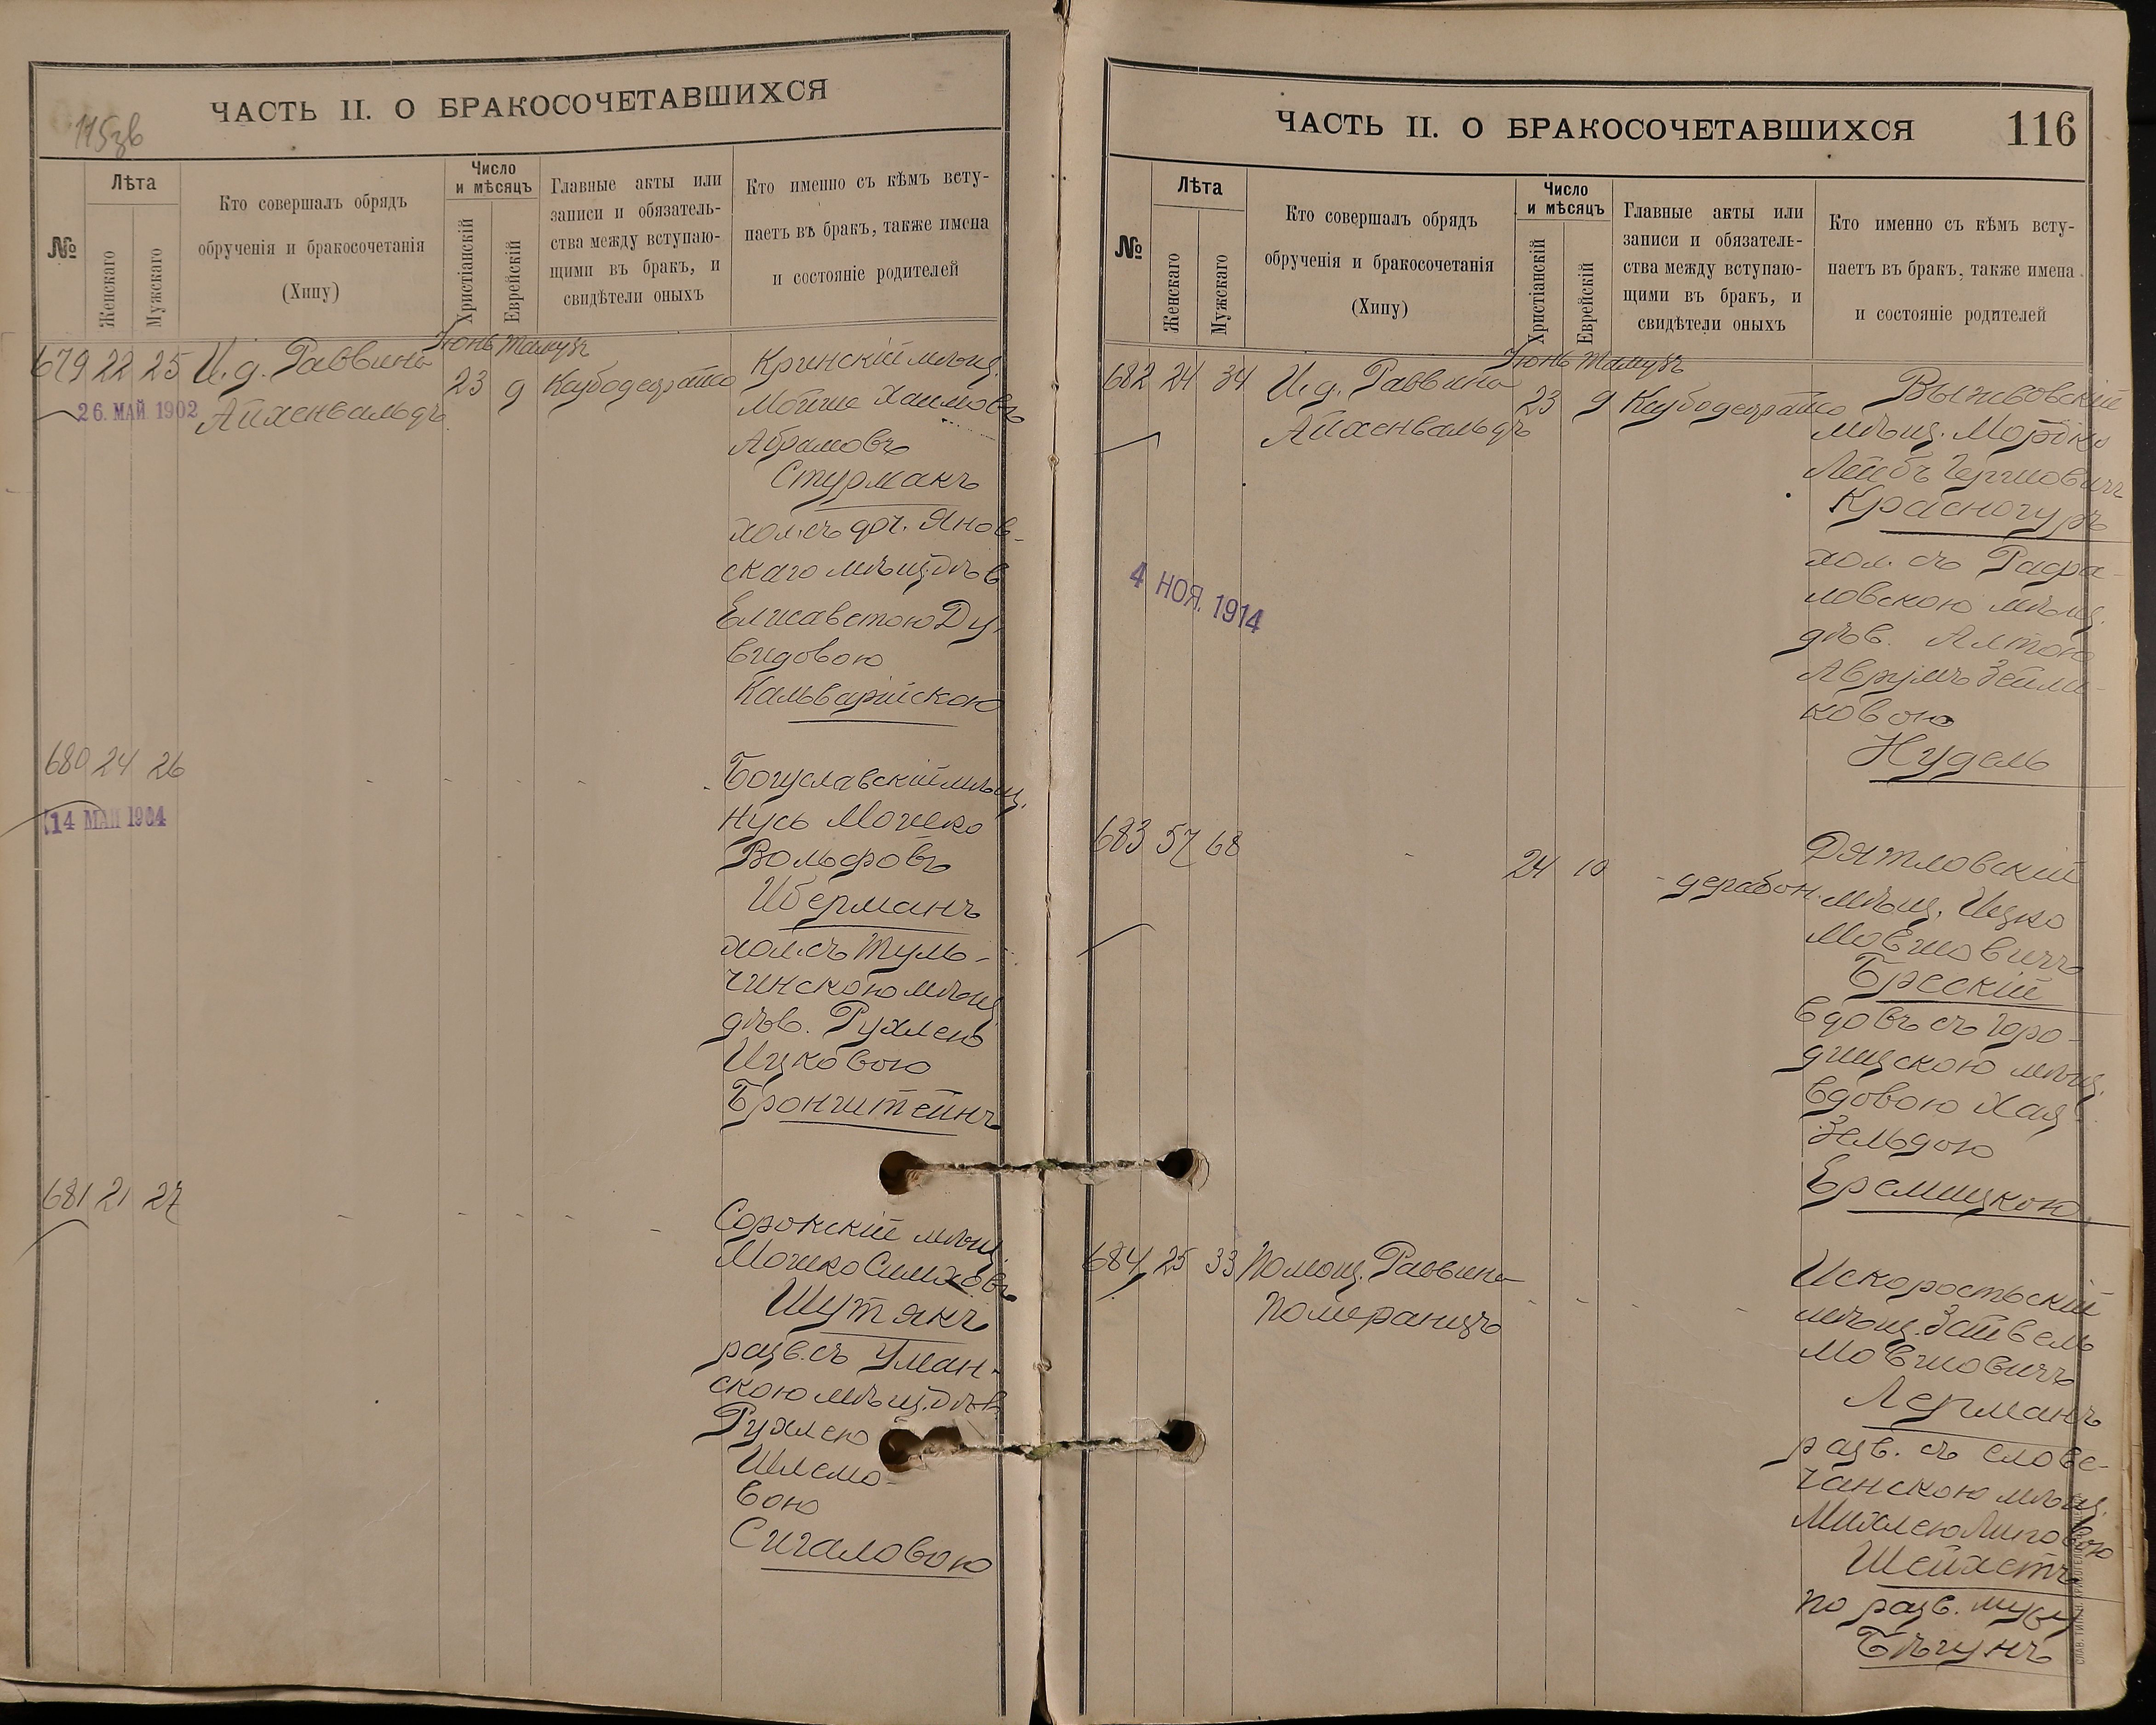 ЧАСТЬ II. О БРАКОСОЧЕТАВШИХСЯ
115зв
№
Лѣта
Женскаго
Мужскаго
Кто совершалъ обрядъ
обрученія и бракосочетанія
(Хипу)
Число
и мѣсяцъ
Христіанскій
Еврейскій
Главные акты или
записи и обязатель-
ства между вступаю-
щими въ бракъ, и
свидѣтели оныхъ
Кто именно съ кѣмъ всту-
паетъ въ бракъ, также имена
и состояніе родителей
Іюнь Тамузъ
679 22 25 И. д. Раввина 23 9 Каубодецрайто Кринскій мѣщ.
26. МАЙ 1902
Айхенвальдъ
Мойше Хаимовъ
Абрамовъ
Стурмакъ
хол. съ доч. Янов-
скаго мѣщ. дѣв
Елисаветою Ду-
видовою
Кальварійскою
680 24 26 - - - - Богуславскій мѣщ.
14 МАЙ 1904
Нусь Мошко
Вольфовъ
Иберманъ
хол. съ Туль-
чинскою мѣщ
дѣв. Рухлею
Ицковою
Бронштейнъ
681 21 27 - - - - - Сорокскій мѣщ.
Мошко Симховъ
Шутякъ
разв. съ Уман-
скою мѣщ. дѣв.
Рухлею
Шлемо-
вою
Сигаловою
ЧАСТЬ II. О БРАКОСОЧЕТАВШИХСЯ
116
№
Лѣта
Женскаго
Мужскаго
Кто совершалъ обрядъ
обрученія и бракосочетанія
(Хипу)
Число
и мѣсяцъ
Христіанскій
Еврейскій
Главные акты или
записи и обязатель-
ства между вступаю-
щими въ бракъ, и
свидѣтели оныхъ
Кто именно съ кѣмъ всту-
паетъ въ бракъ, также имена
и состояніе родителей
Іюнь Тамузъ
682 24 34 И. д. Раввина 23 9 Каубодецрайто Выжвовскій
Айхенвальдъ
мѣщ. Мордко
Лейбъ Гершовичъ
Красногуръ
4 НОЯ. 1914
хол. съ Рафа-
ловскою мѣщ.
дѣв. Алтою
Аврумъ Зейли-
ковою
Нудель
683 57 68 - 24 10 - дерабон. Дятловскій
мѣщ. Ицко
Мовшовичъ
Брескій
вдовъ съ Горо-
дищскою мѣщ.
вдовою Хая
Зельдою
Еремицкою
684 25 33 Помощ. Раввина - - - - Искоростьскій
Померанцъ
мѣщ. Зейвель
Мовшовичъ
Лерманъ
разв. съ слове-
чанскою мѣщ.
Михлею Липовою
Шейхетъ
по разв. мужу
Бѣгунъ